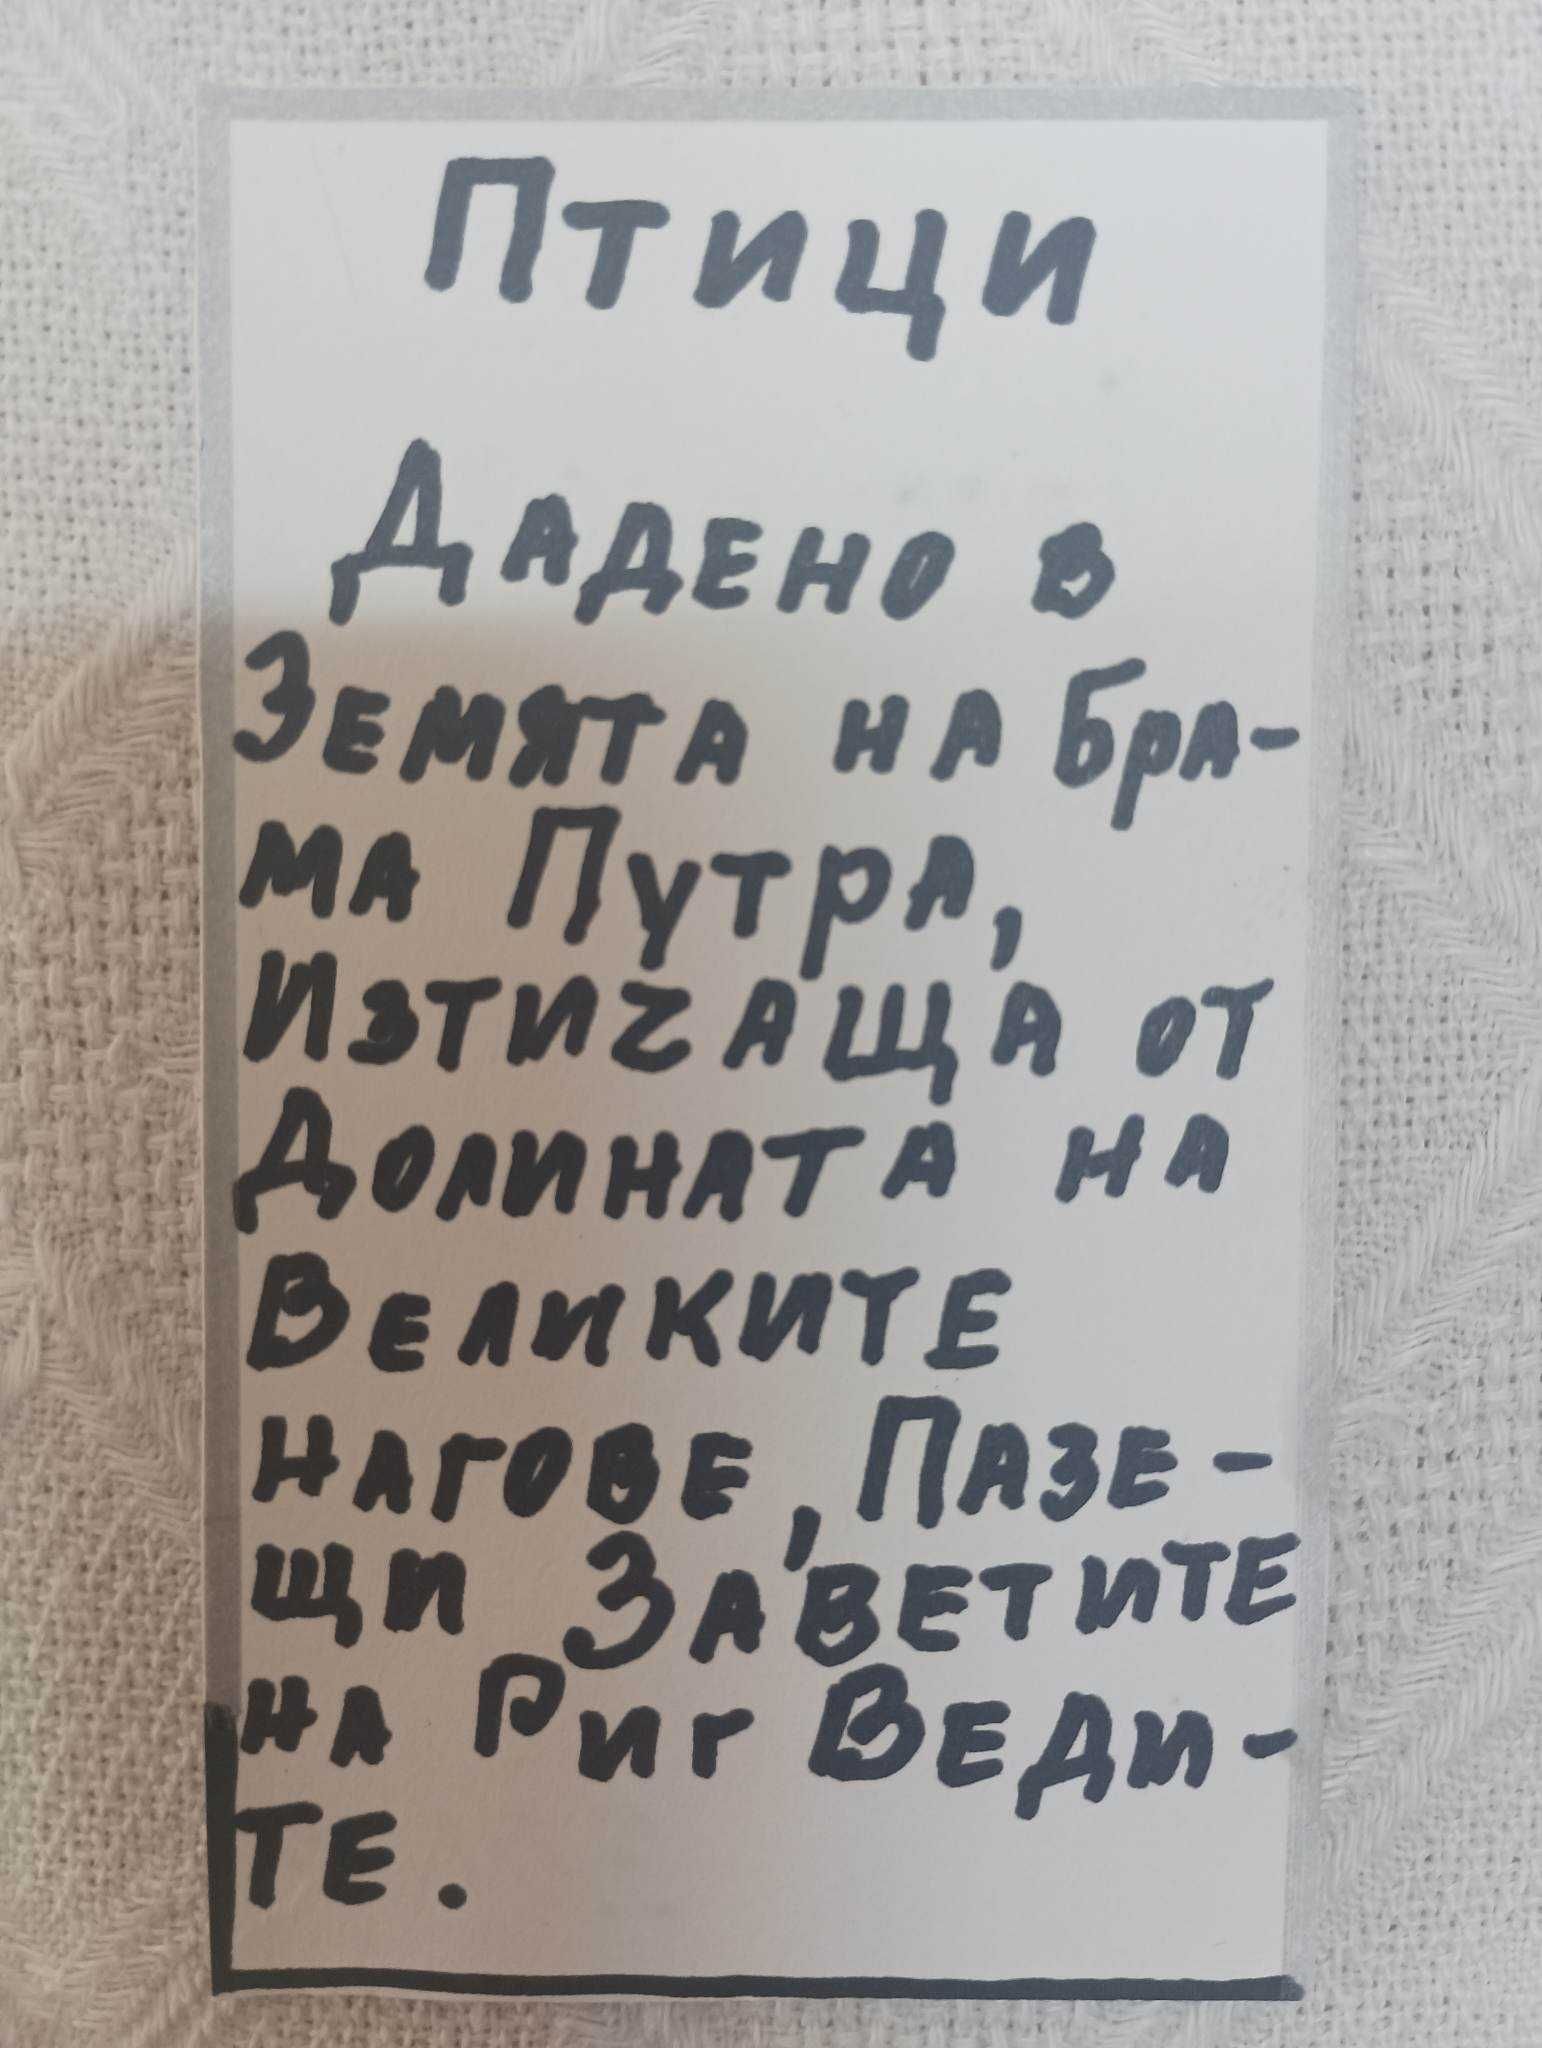 Птици
Дадено в
Земята на Бра-
ма Путра,
Изтичаща от
Долината на
Великите
нагове, Пазе-
щи Заветите
на Риг Веди-
те.